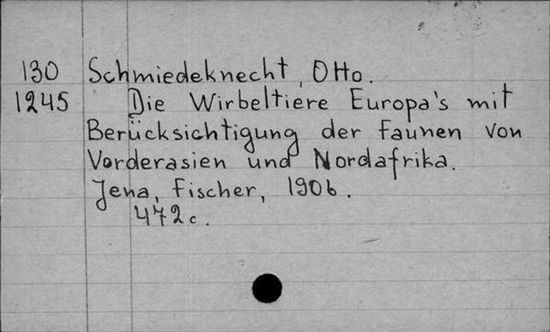 130 Schmiedeknecht, Otto.
1245 Die Wirbeltiere Europa's mit
Berücksichtigung der Faunen von
Vorderasien und Nordafrika.
Jena, Fischer, 1906.
472 c.